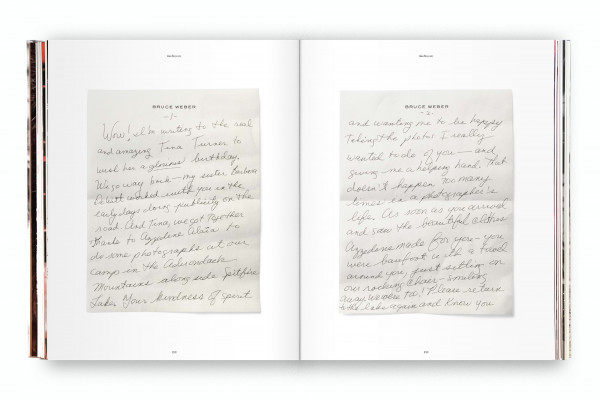 BRUCE WEBER
-1-
Wow! I'm writing to the real
and amazing Tina Turner to
wish her a glorious birthday.
We go way back — my sister Barbara
DeWitt worked with you in the
early days doing publicity on the
road. And Tina, we got together
thanks to Azzedine Alaïa to
do some photographs at our
camp in the Adirondack
Mountains along side Spitfire
Lake. Your kindness of spirit
BRUCE WEBER
-2-
and wanting me to be happy
taking the photos I really
wanted to do of you — and
giving me a helping hand. That
doesn't happen too many
times in a photographer's
life. As soon as you arrived
and saw the beautiful clothes
Azzedine made for you — you
were barefoot with a towel
around you, just sitting on
our rocking chair — smiling
away. We do too! Please return
to the lake again and know you